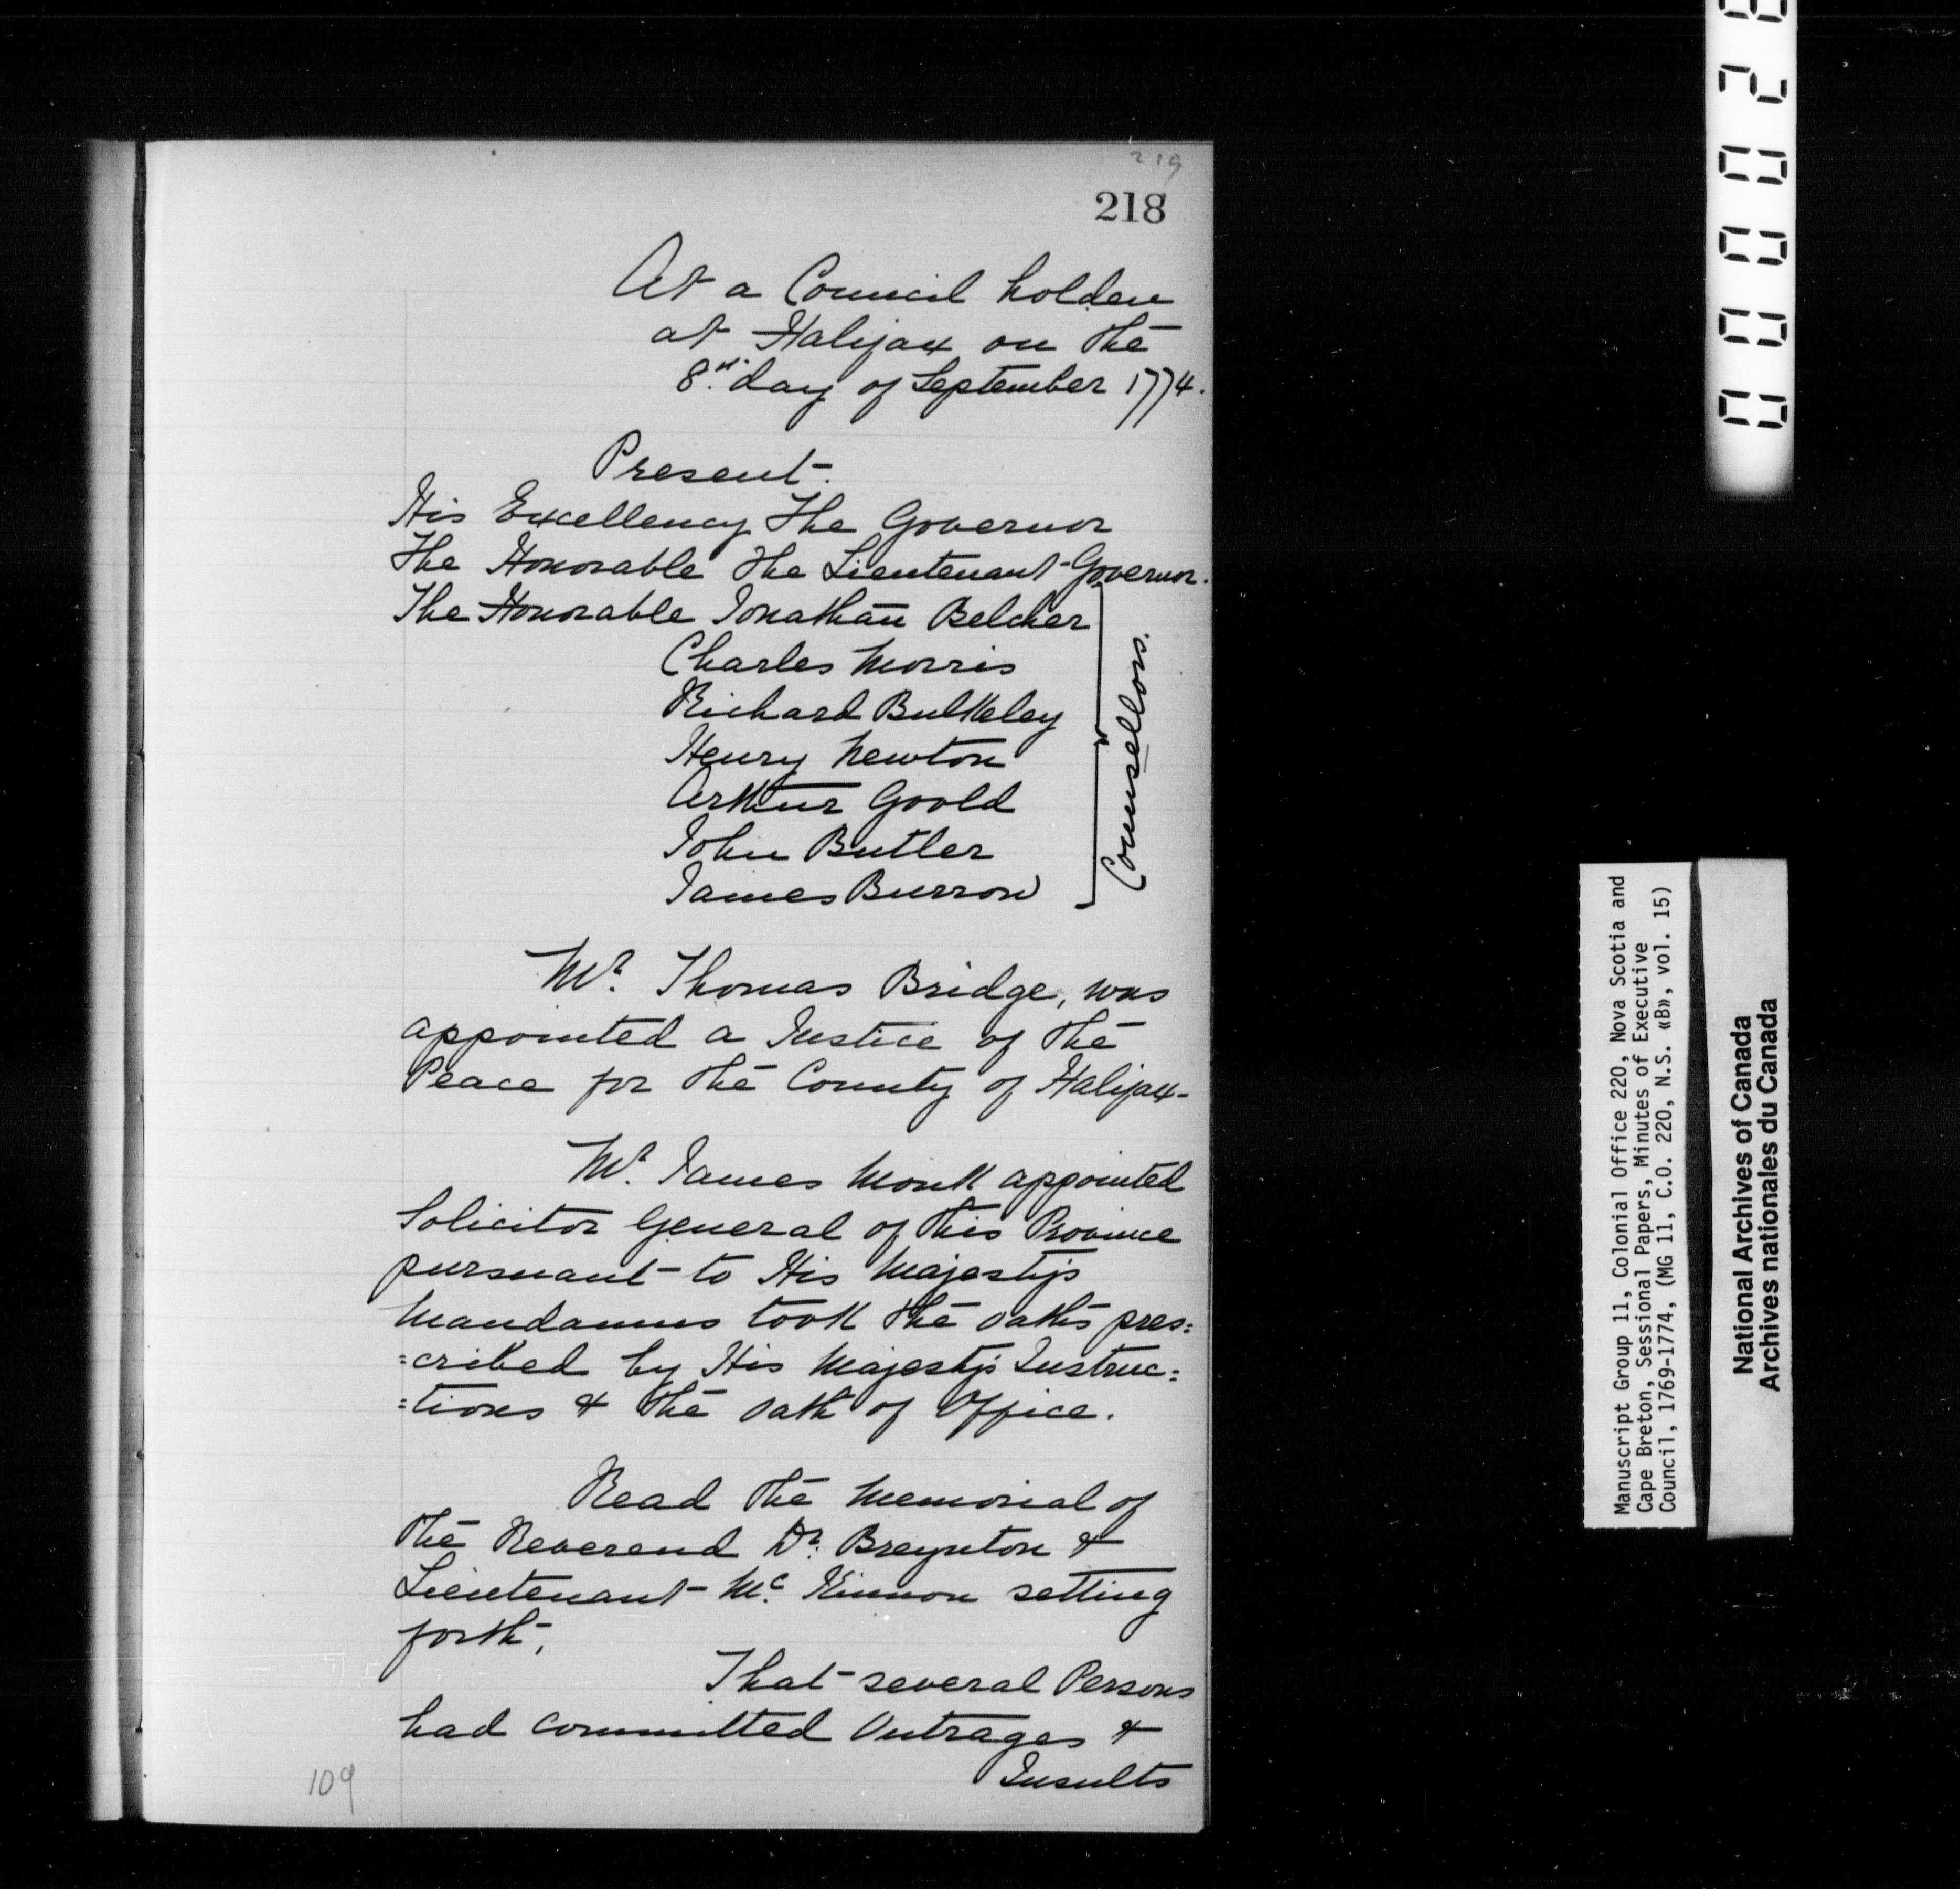 219
218
At a Council holden
at Halifax on the
8th day of September 1774.
Present.
His Excellency The Governor
The Honorable the Lieutenant-Governor.
The Honorable Jonathan Belcher
Charles Morris
Richard Bulkeley
Henry Newton
Arthur Goold
John Butler
James Burrow
Counsellors.
Mr. Thomas Bridge, was
appointed a Justice of the
Peace for the County of Halifax-
Mr. James Monk appointed
Solicitor General of this Province
pursuant to His Majesty's
Mandamus took the oaths pres:
:cribed by His Majesty's Instruc:
:tions & the oath of Office.
Read the Memorial of
the Reverend Dr. Breynton &
Lieutenant Mc. Kinnon setting
forth,
That several Persons
had committed Outrages &
Insults
109
Manuscript Group 11, Colonial Office 220, Nova Scotia and
Cape Breton, Sessional Papers, Minutes of Executive
Council, 1769-1774, (MG 11, C.O. 220, N.S. «B», vol. 15)
National Archives of Canada
Archives nationales du Canada